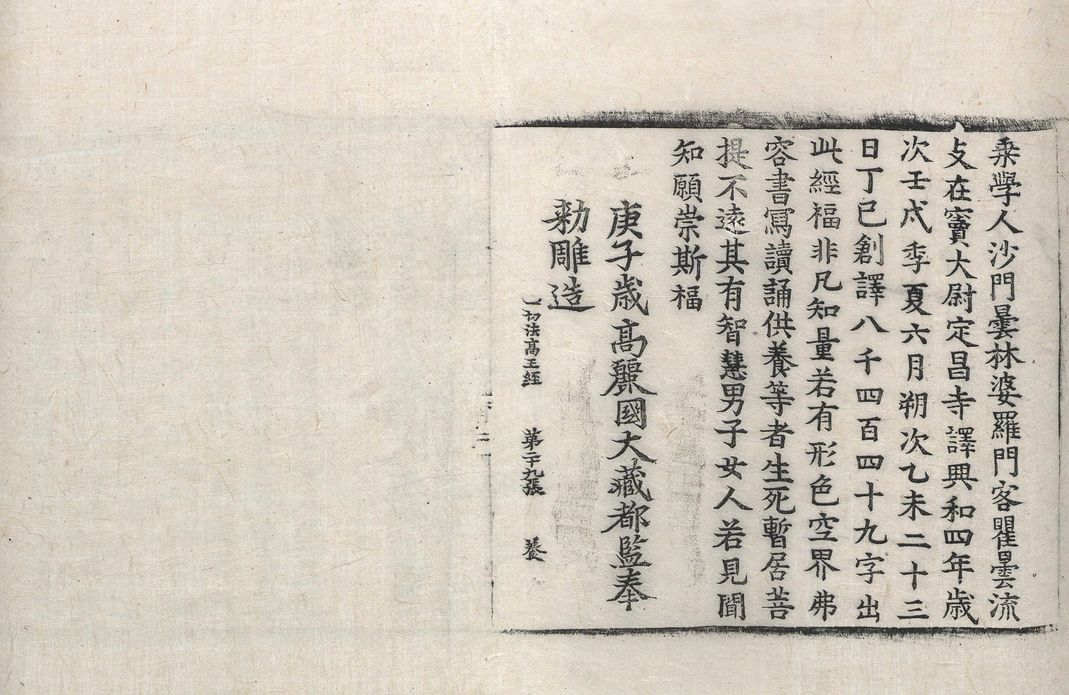 乘學人沙門曇林婆羅門客瞿曇流
支在竇大尉定昌寺譯興和四年歳
次壬戌季夏六月朔次乙未二十三
日丁巳創譯八千四百四十九字出
此經福非凡知量若有形色空界弗
容書寫讀誦供養等者生死暫居菩
提不遠其有智慧男子女人若見聞
知願崇斯福
庚子歳高麗國大藏都監奉
勑雕造
一切法高王經 第二十九張 養